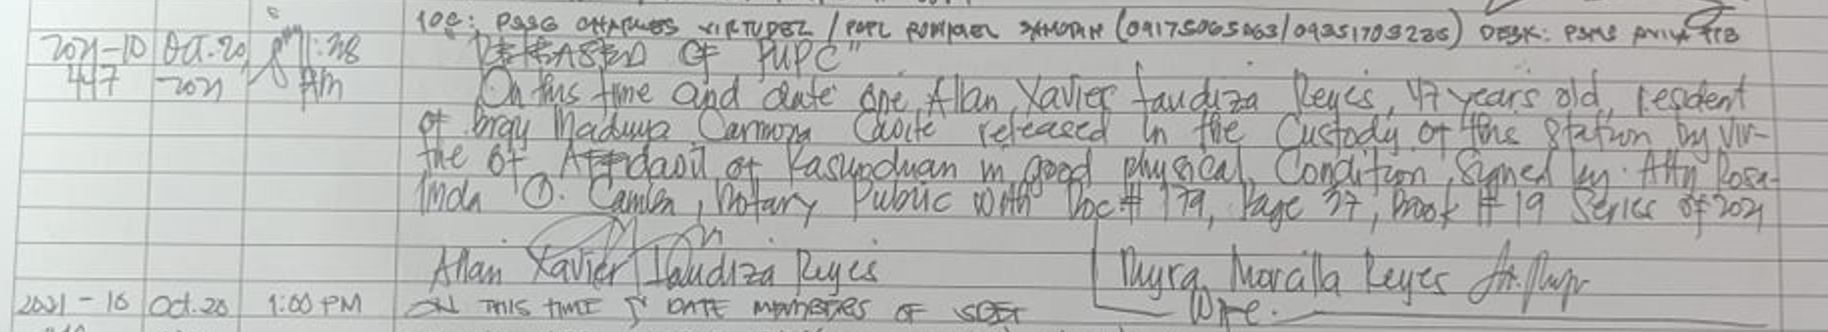 IOC: PSSG CHARLES VIRTUDEZ / PCPL ROMMEL (09175065063/09351703286) DESK: PSMS
2021-10 Oct. 20, 11:28 "RELEASED OF PUPC"
447 2021 AM On this time and date one, Allan Xavier Jaudiza Reyes, 47 years old, resident
of brgy Maduya Carmona Cavite released in the Custody of this Station by Vir-
the of Affidavit of Kasunduan in good physical Condition, Signed by: Atty Rosa-
linda O. , Notary Public with Doc# 179, Page 37, Book # 19 Series of 2021
Allan Xavier Jaudiza Reyes Myra Morcilla Reyes
Wife.
2021 - 10 Oct. 20 1:00 PM ON THIS TIME & DATE MEMBERS OF